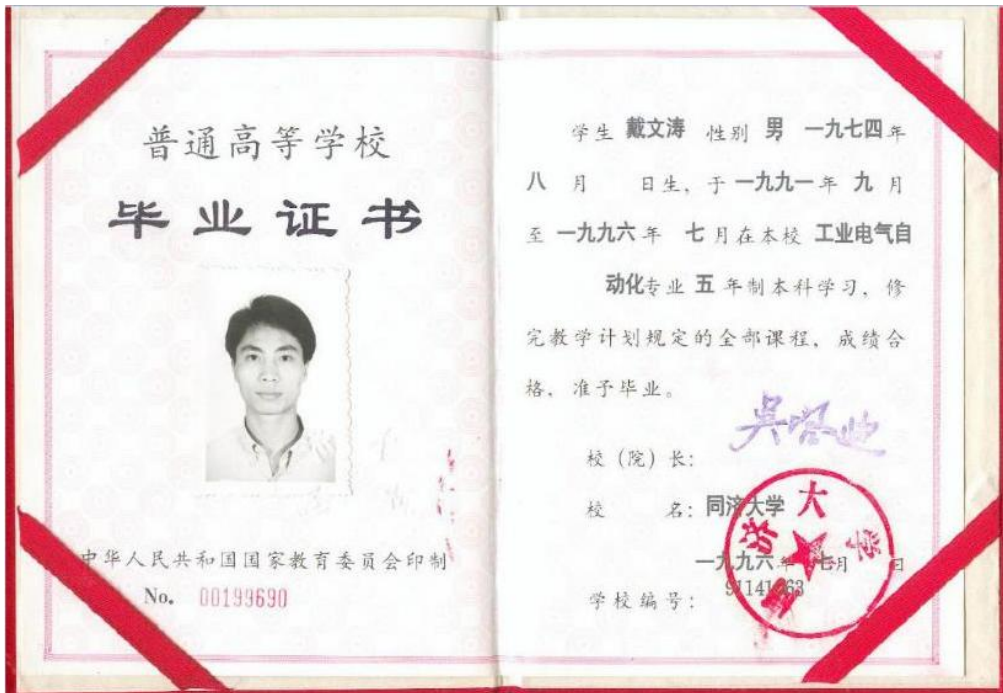 普通高等学校
毕业证书
中华人民共和国国家教育委员会印制
No. 00199690
学生 戴文涛 性别 男 一九七四年
八 月 日生，于 一九九一年 九 月
至 一九九六年 七月在本校 工业电气自
动化专业 五 年制本科学习，修
完教学计划规定的全部课程，成绩合
格，准予毕业。
校（院）长：吴启迪
校 名：同济大学
一九九六年 七月 日
学校编号：
同济大学